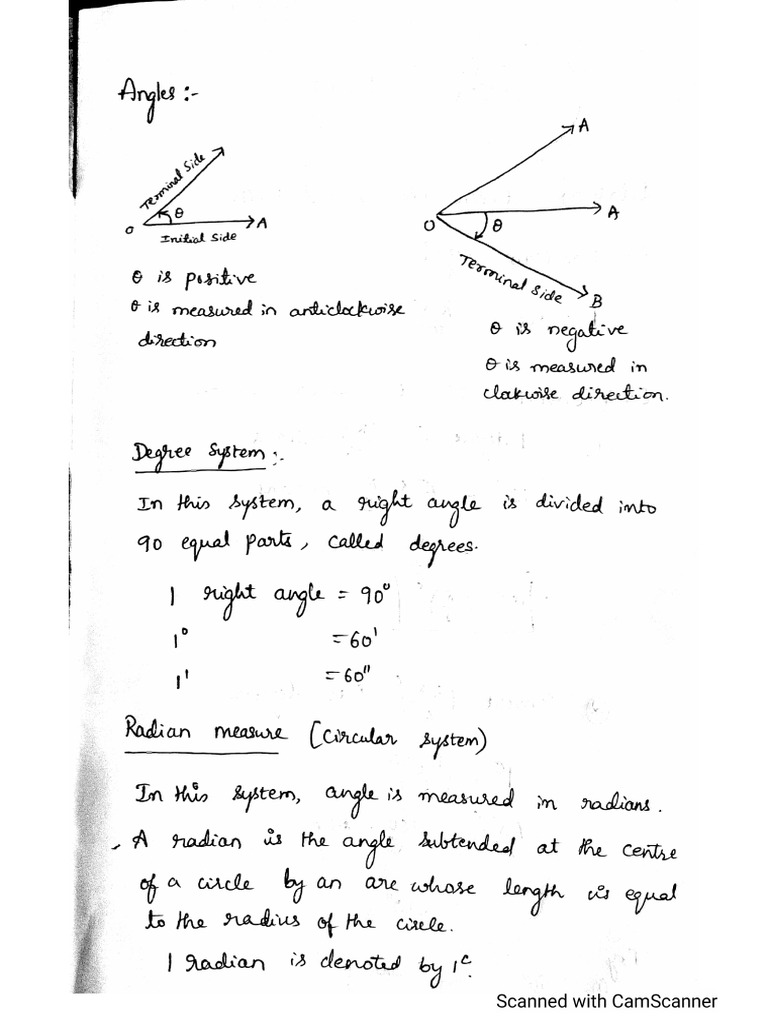 Angles :-
Terminal Side
θ
O
A
Initial Side
θ is positive
θ is measured in anticlockwise
direction
A
O
A
θ
Terminal Side
B
θ is negative
θ is measured in
clakwise direction.
Degree System :-
In this system, a right angle is divided into
90 equal parts, called degrees.
1 right angle = 90°
1° = 60'
1' = 60"
Radian measure (circular system)
In this system, angle is measured in radians.
A radian is the angle subtended at the centre
of a circle by an arc whose length is equal
to the radius of the circle.
1 radian is denoted by 1ᶜ.
Scanned with CamScanner